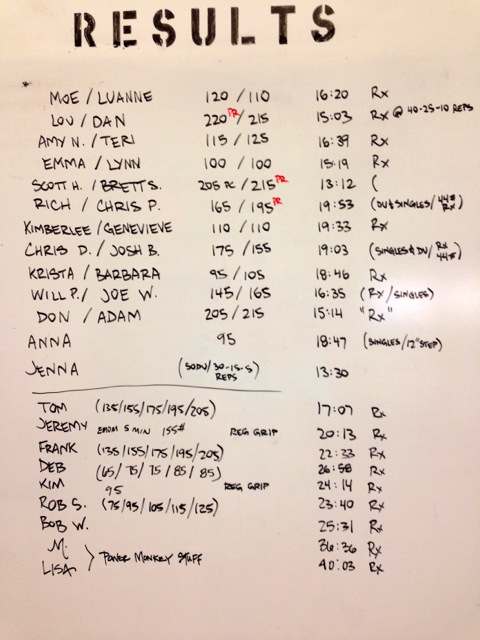 RESULTS
MOE / LUANNE 120 / 110 16:20 Rx
LOU / DAN 220 PR / 215 15:03 Rx @ 40-25-10 REPS
AMY N. / TERI 115 / 125 16:39 Rx
EMMA / LYNN 100 / 100 15:19 Rx
SCOTT H. / BRETT S. 205 PC / 215 PR 13:12 (
RICH / CHRIS P. 165 / 195 PR 19:53 (DU & SINGLES / 44# Rx)
KIMBERLEE / GENEVIEVE 110 / 110 19:33 Rx
CHRIS D. / JOSH B. 175 / 155 19:03 (SINGLES & DU / Rx 44#)
KRISTA / BARBARA 95 / 105 18:46 Rx
WILL P. / JOE W. 145 / 165 16:35 (Rx / SINGLES)
DON / ADAM 205 / 215 15:14 "Rx"
ANNA 95 18:47 (SINGLES / 12" STEP)
JENNA (50DU / 30-15-5 REPS) 13:30
TOM (135/155/175/195/205) 17:07 Rx
JEREMY EMOM 5 MIN 155# REG GRIP 20:13 Rx
FRANK (135/155/175/195/205) 22:33 Rx
DEB (65/75/75/85/85) 26:58 Rx
KIM 95 REG GRIP 24:14 Rx
ROB S. (75/95/105/115/125) 23:40 Rx
BOB W. 25:31 Rx
M. 36:36 Rx
LISA > POWER MONKEY STUFF 40:03 Rx